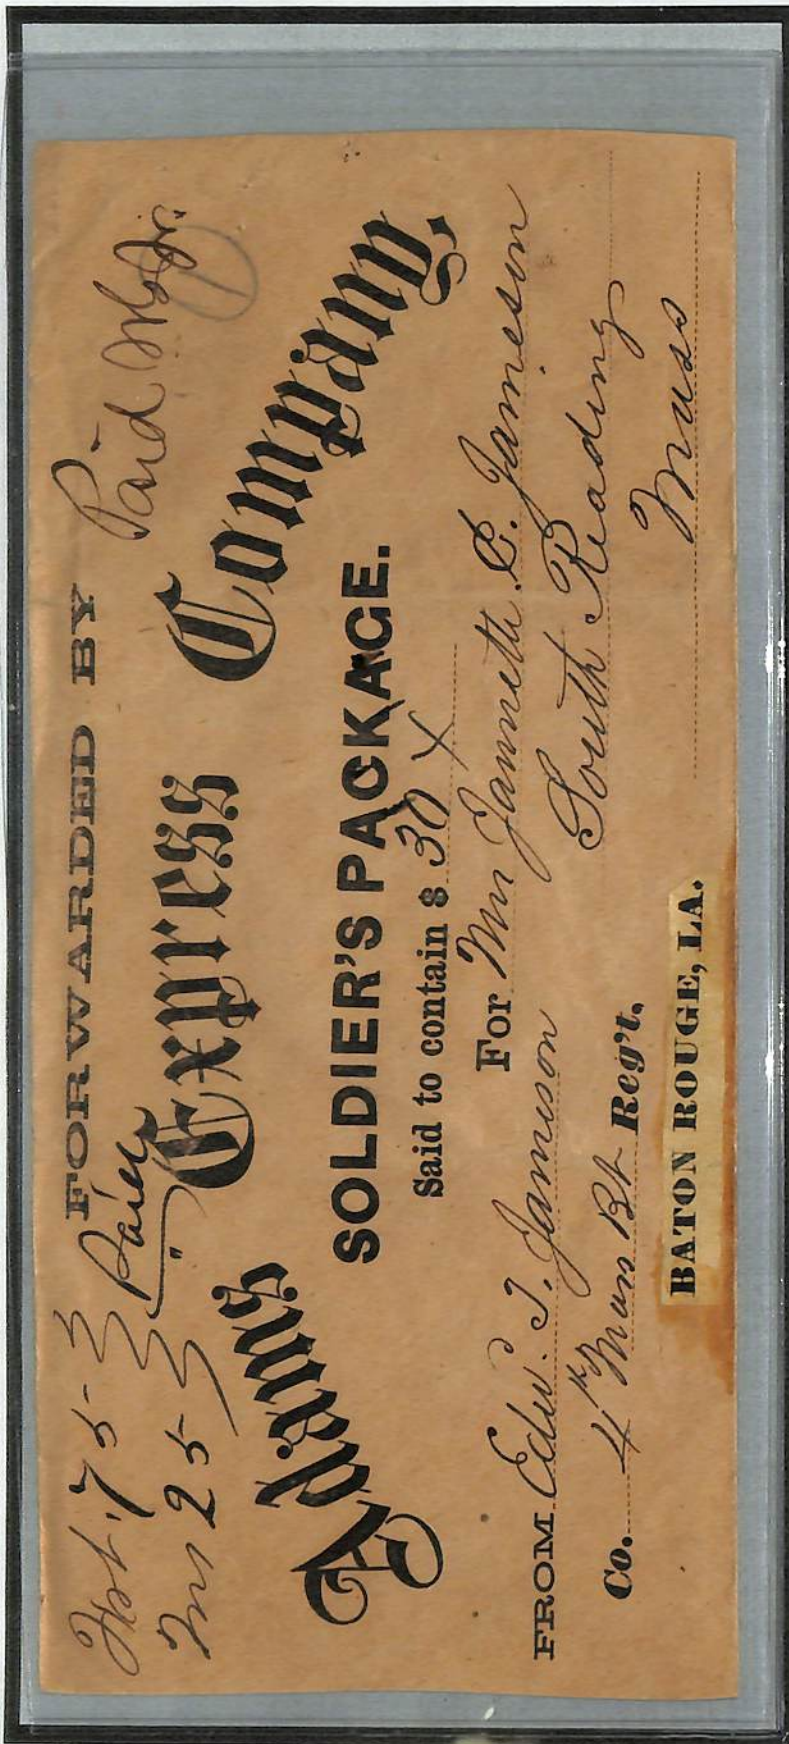 Frt. 75 Paid
Ins 25
FORWARDED BY
Paid
Adams Express Company,
SOLDIER'S PACKAGE.
Said to contain $ 30 X
For Mrs Janneth C. Jameson
South Reading
Mass
FROM Edw. T. Jameson
Co. 4th Mass Bt Reg't.
BATON ROUGE, LA.